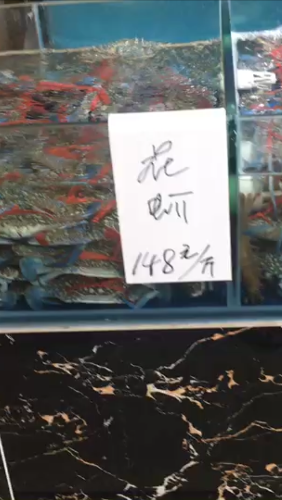 花
蚧
148元/斤